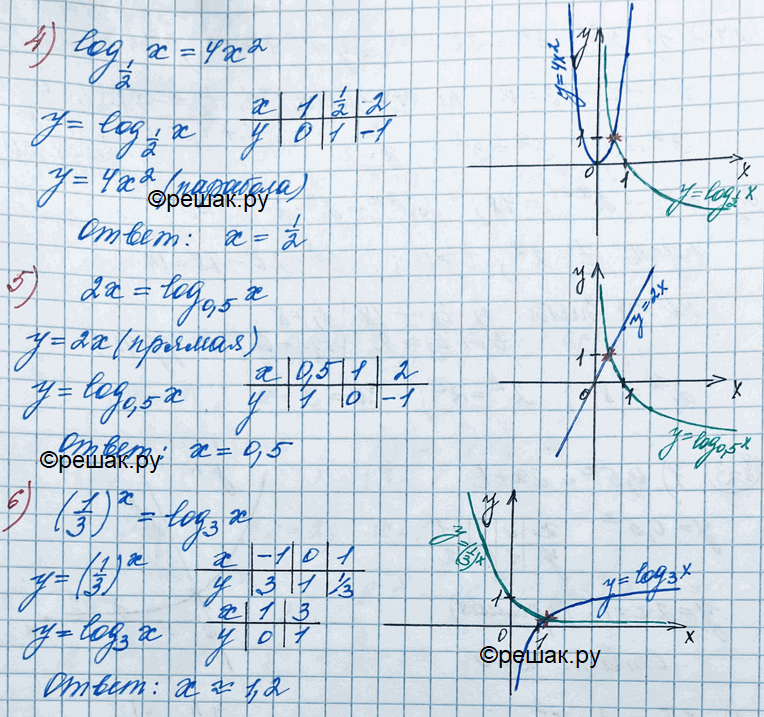 4) log_{1/2} x = 4x²
y = log_{1/2} x
x | 1 | 1/2 | 2
y | 0 | 1 | -1
y = 4x² (парабола)
©решак.ру
Ответ: x = 1/2
y
y=4x²
1
0
1
x
y=log_{1/2} x
5) 2x = log_{0,5} x
y = 2x (прямая)
y = log_{0,5} x
x | 0,5 | 1 | 2
y | 1 | 0 | -1
Ответ: x = 0,5
©решак.ру
y
y=2x
1
0
1
x
y=log_{0,5} x
6) (1/3)^x = log_3 x
y = (1/3)^x
x | -1 | 0 | 1
y | 3 | 1 | 1/3
y = log_3 x
x | 1 | 3
y | 0 | 1
Ответ: x ≈ 1,2
y
y=(1/3)^x
1
0
1
x
y=log_3 x
©решак.ру